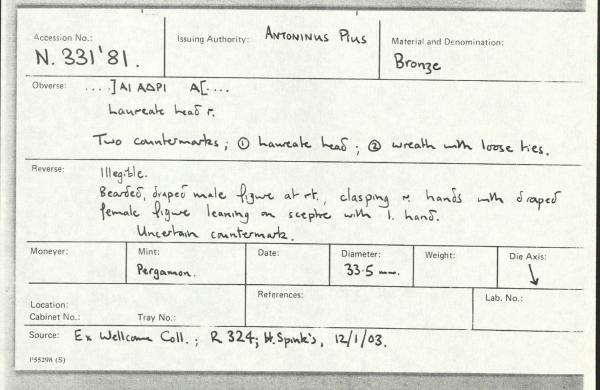 Accession No.: N. 331'81.
Issuing Authority: Antoninus Pius
Material and Denomination: Bronze
Obverse: ....]AI AΔPI A[....
Laureate head r.
Two countermarks; ① Laureate head; ② wreath with loose ties.
Reverse: Illegible.
Bearded, draped male figure at rt., clasping r. hands with draped
female figure leaning on sceptre with l. hand.
Uncertain countermark.
Moneyer:
Mint: Pergamon.
Date:
Diameter: 33.5 mm.
Weight:
Die Axis: ↘
Location:
Cabinet No.: Tray No.:
References:
Lab. No.:
Source: Ex Wellcome Coll.; R 324; Spink's, 12/1/03.
P55298 (S)